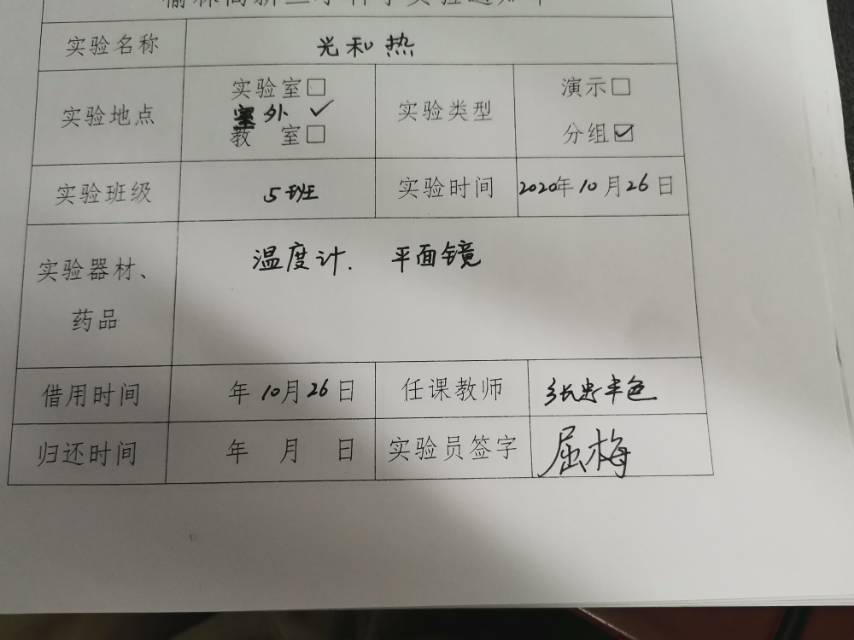 实验名称 光和热
实验地点 实验室□ 室外 ✓ 教 室□ 实验类型 演示□ 分组☑
实验班级 5班 实验时间 2020年10月26日
实验器材、药品 温度计. 平面镜
借用时间 年10月26日 任课教师
归还时间 年 月 日 实验员签字 屈梅